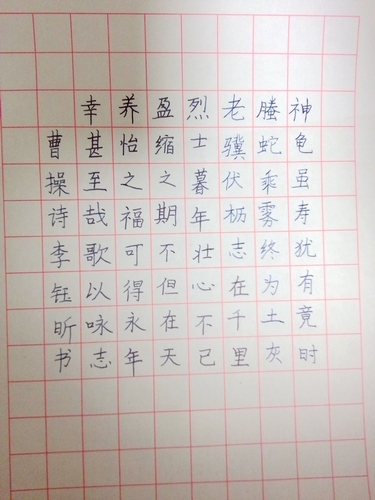 神龟虽寿犹有竟时
螣蛇乘雾终为土灰
老骥伏枥志在千里
烈士暮年壮心不已
盈缩之期不但在天
养怡之福可得永年
幸甚至哉歌以咏志
曹操诗李钰昕书